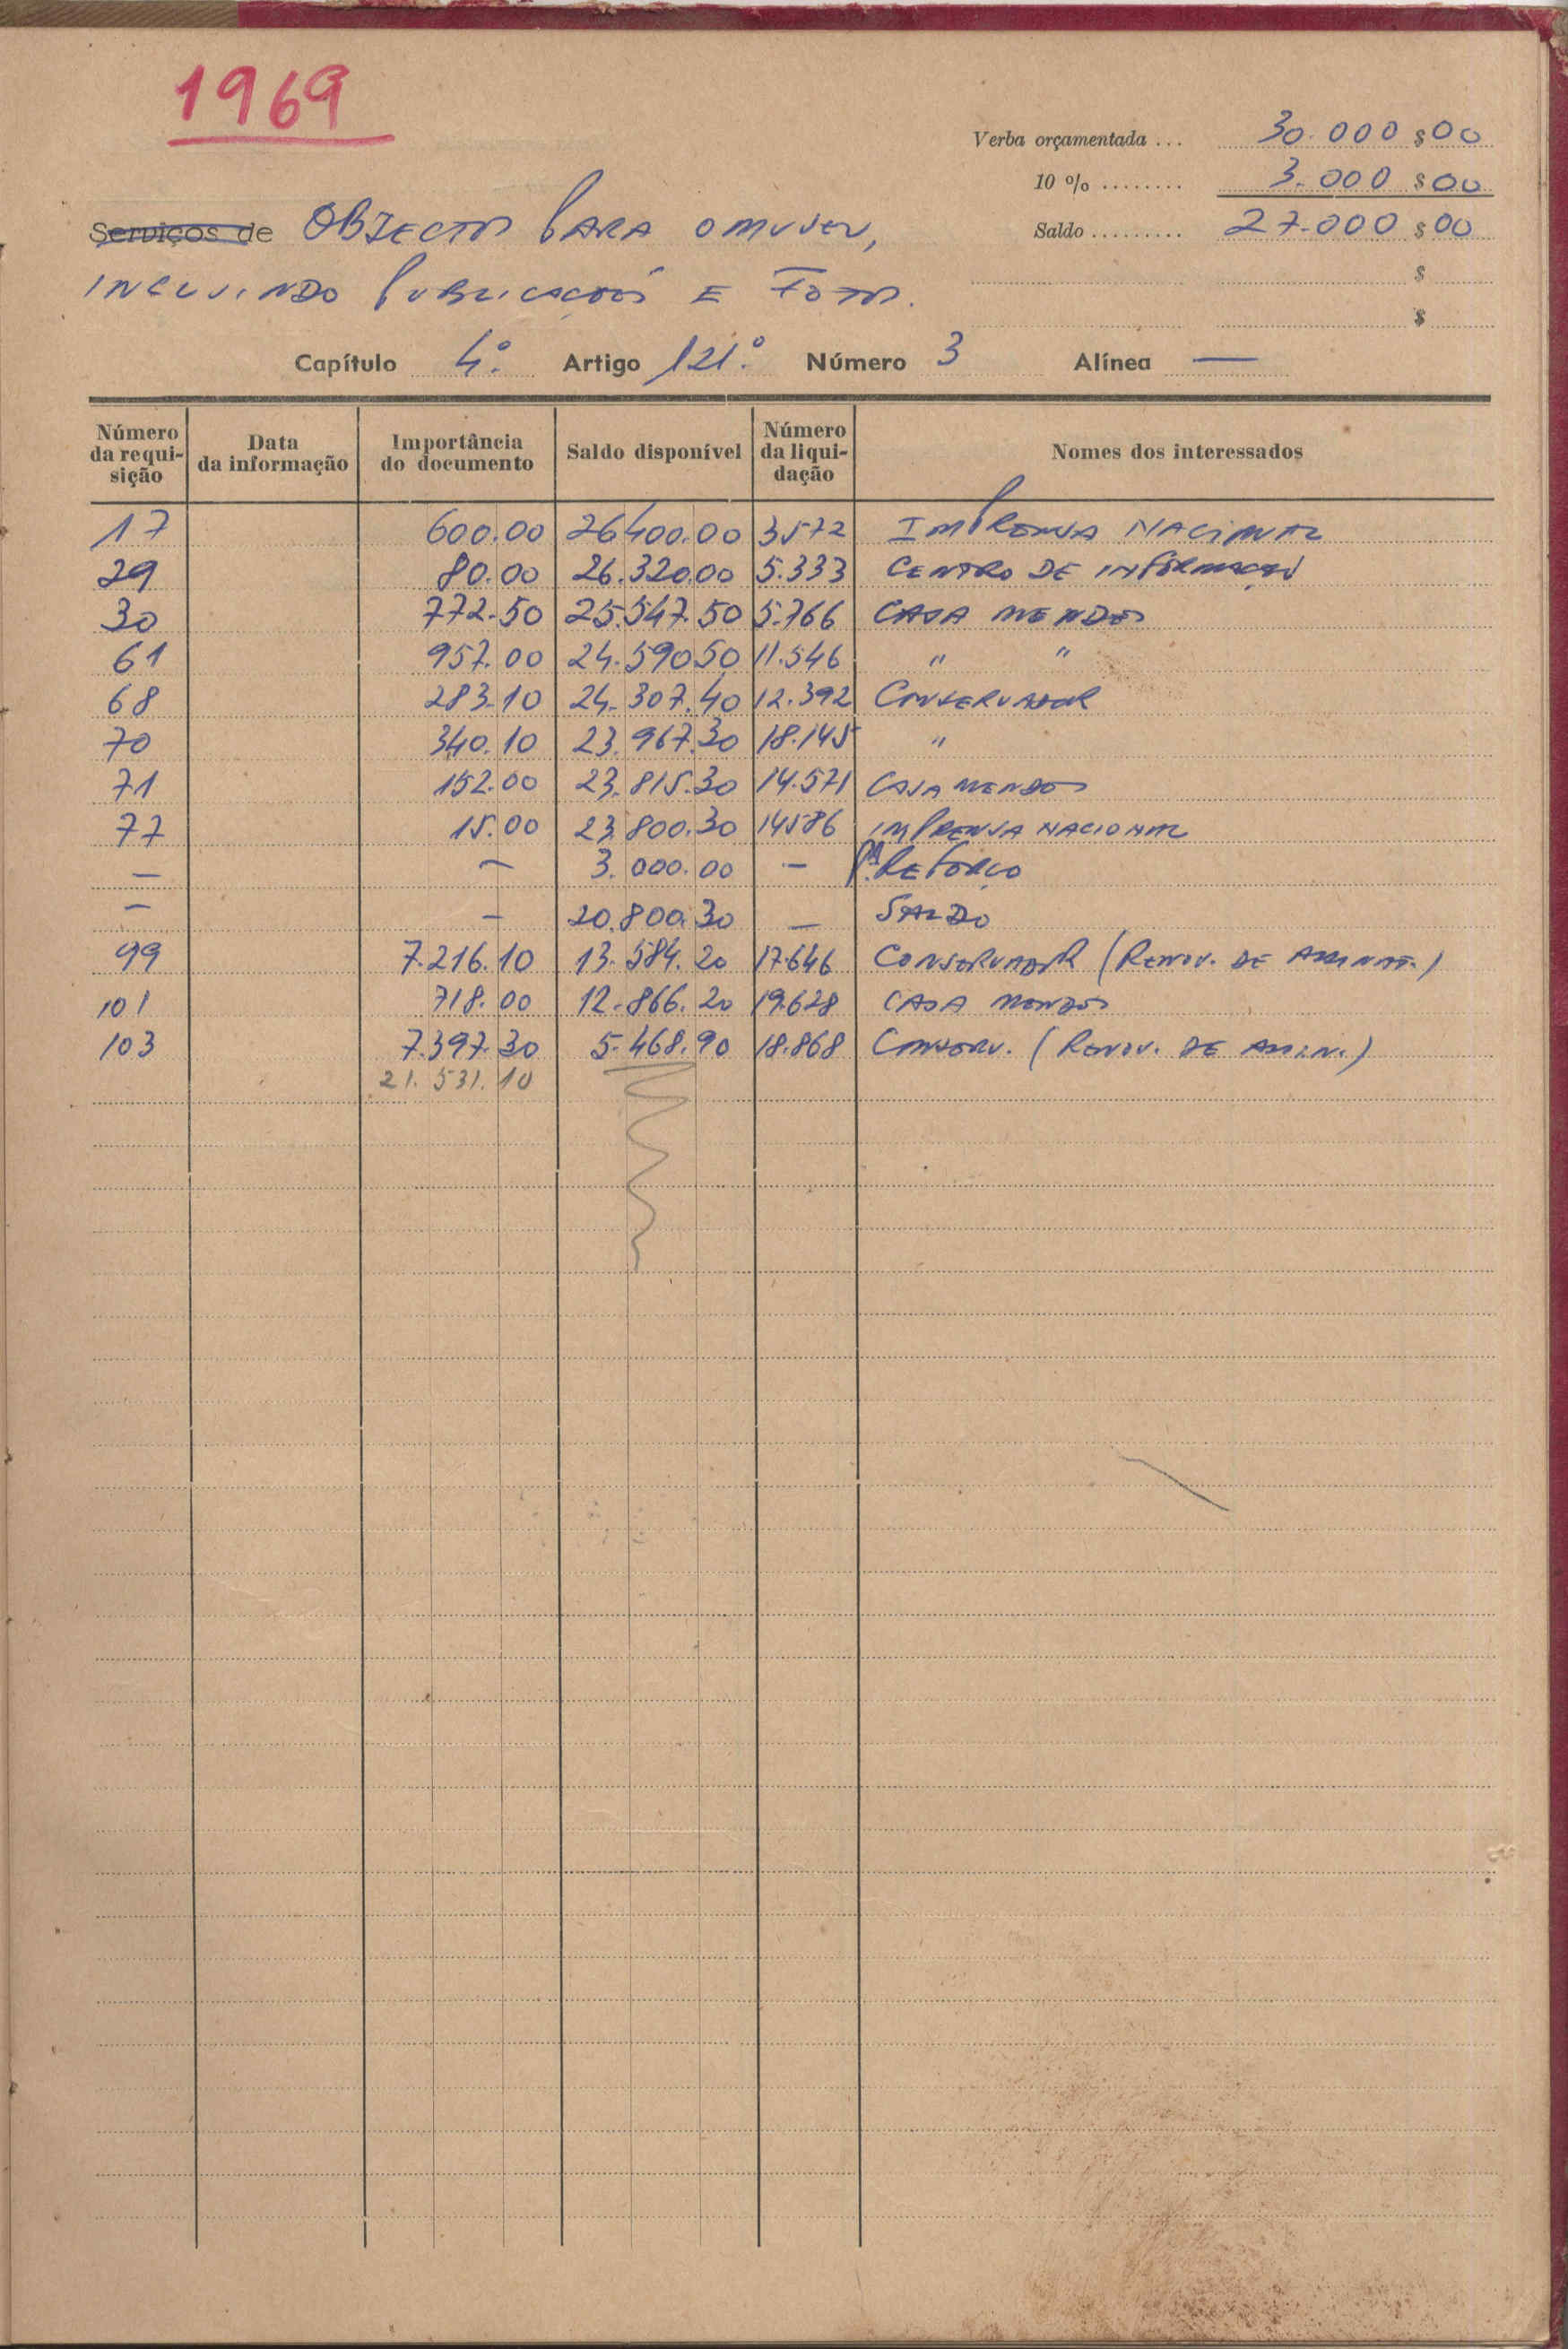 1969
Verba orçamentada ... 30.000 $ 00
10 % ........ 3.000 $ 00
Saldo ......... 27.000 $ 00
$
$
Serviços de OBJECTOS PARA O MUSEU,
INCLUINDO PUBLICAÇÕES E FOTOS.
Capítulo 4.º Artigo 121.º Número 3 Alínea —
Número da requi-sição Data da informação Importância do documento Saldo disponível Número da liqui-dação Nomes dos interessados
17 600.00 26400.00 3572 IMPRENSA NACIONAL
29 80.00 26.320.00 5.333 CENTRO DE INFORMAÇÃO
30 772.50 25.547.50 5.766 CASA MENDES
61 957.00 24.590.50 11.546 " "
68 283.10 24.307.40 12.392 CONSERVADOR
70 340.10 23.967.30 18.145 "
71 152.00 23.815.30 14.571 CASA MENDES
77 15.00 23.800.30 14586 IMPRENSA NACIONAL
— — 3.000.00 — Pª. REFORÇO
— — 20.800.30 — SALDO
99 7.216.10 13.584.20 17.646 CONSERVADOR (RENOV. DE ASSINAT.)
101 718.00 12.866.20 19.628 CASA MENDES
103 7.397.30 5.468.90 18.868 CONSERV. (RENOV. DE ASSIN.)
21.531.10